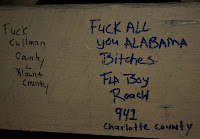 Fuck
Cullman
County
Blount
County
Fuck ALL
you ALABAMA
Bitches.
Fla Boy
Roach
941
Charlotte County